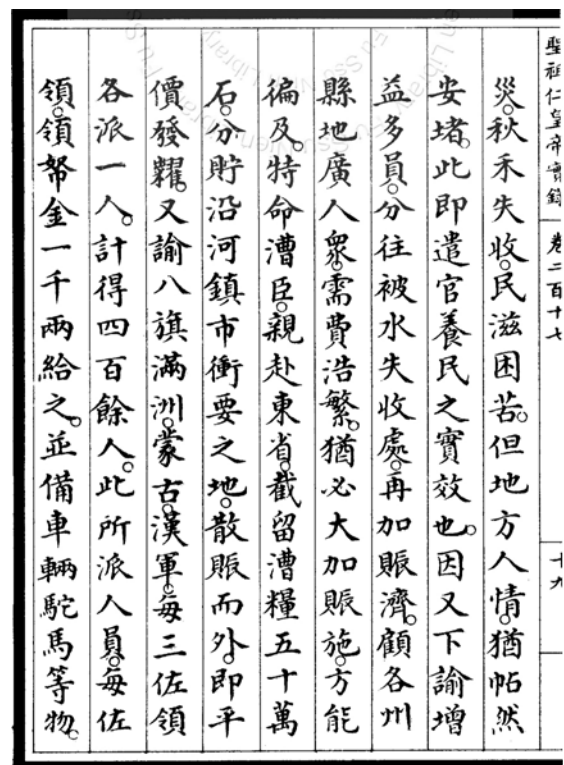 聖祖仁皇帝實錄 卷二百十七 十九
災。秋禾失收。民滋困苦。但地方人情。猶帖然
安堵。此即遣官養民之實效也。因又下諭增
益多員。分往被水失收處。再加賑濟。顧各州
縣地廣人衆。需費浩繁。猶必大加賑施。方能
徧及。特命漕臣。親赴東省。截留漕糧五十萬
石。分貯沿河鎮市衝要之地。散賑而外。即平
價發糶。又諭八旗滿洲。蒙古。漢軍。每三佐領
各派一人。計得四百餘人。此所派人員。每佐
領。領帑金一千兩給之。並備車輛駝馬等物。